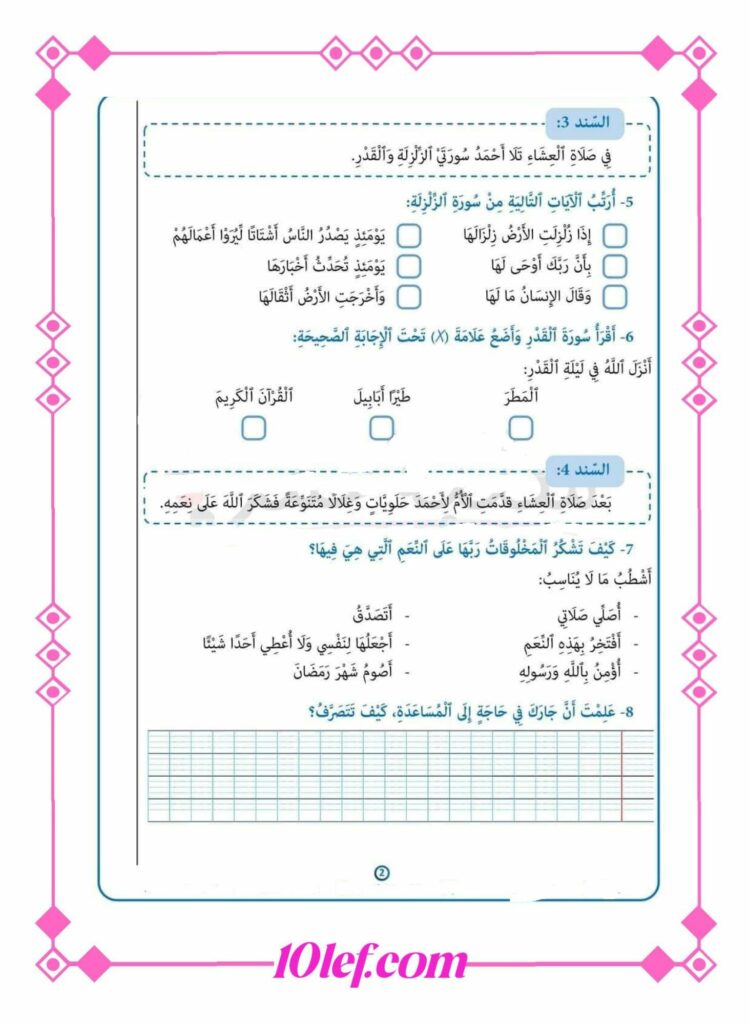 السّند 3:
فِي صَلَاةِ ٱلْعِشَاءِ تَلَا أَحْمَدُ سُورَتَيْ ٱلزَّلْزِلَةِ وَٱلْقَدْرِ.
5- أُرَتِّبُ ٱلْآيَاتِ ٱلتَّالِيَةِ مِنْ سُورَةِ ٱلزَّلْزِلَةِ:
إِذَا زُلْزِلَتِ الأَرْضُ زِلْزَالَهَا يَوْمَئِذٍ يَصْدُرُ النَّاسُ أَشْتَاتًا لِّيُرَوْا أَعْمَالَهُمْ
بِأَنَّ رَبَّكَ أَوْحَى لَهَا يَوْمَئِذٍ تُحَدِّثُ أَخْبَارَهَا
وَقَالَ الإِنسَانُ مَا لَهَا وَأَخْرَجَتِ الأَرْضُ أَثْقَالَهَا
6- أَقْرَأُ سُورَةَ ٱلْقَدْرِ وَأَضَعُ عَلَامَةَ (X) تَحْتَ ٱلْإِجَابَةِ ٱلصَّحِيحَةِ:
أَنْزَلَ ٱللَّهُ فِي لَيْلَةِ ٱلْقَدْرِ:
ٱلْمَطَرَ طَيْرًا أَبَابِيلَ ٱلْقُرْآنَ ٱلْكَرِيمَ
السّند 4:
بَعْدَ صَلَاةِ ٱلْعِشَاءِ قَدَّمَتِ ٱلْأُمُّ لِأَحْمَدَ حَلَوِيَّاتٍ وَغِلَالًا مُتَنَوِّعَةً فَشَكَرَ ٱللَّهَ عَلَى نِعَمِهِ.
7- كَيْفَ تَشْكُرُ ٱلْمَخْلُوقَاتُ رَبَّهَا عَلَى ٱلنِّعَمِ ٱلَّتِي هِيَ فِيهَا؟
أَشْطُبُ مَا لَا يُنَاسِبُ:
- أُصَلِّي صَلَاتِي - أَتَصَدَّقُ
- أَفْتَخِرُ بِهَذِهِ ٱلنِّعَمِ - أَجْعَلُهَا لِنَفْسِي وَلَا أُعْطِي أَحَدًا شَيْئًا
- أُؤْمِنُ بِٱللَّهِ وَرَسُولِهِ - أَصُومُ شَهْرَ رَمَضَانَ
8- عَلِمْتَ أَنَّ جَارَكَ فِي حَاجَةٍ إِلَى ٱلْمُسَاعَدَةِ، كَيْفَ تَتَصَرَّفُ؟
2
10lef.com